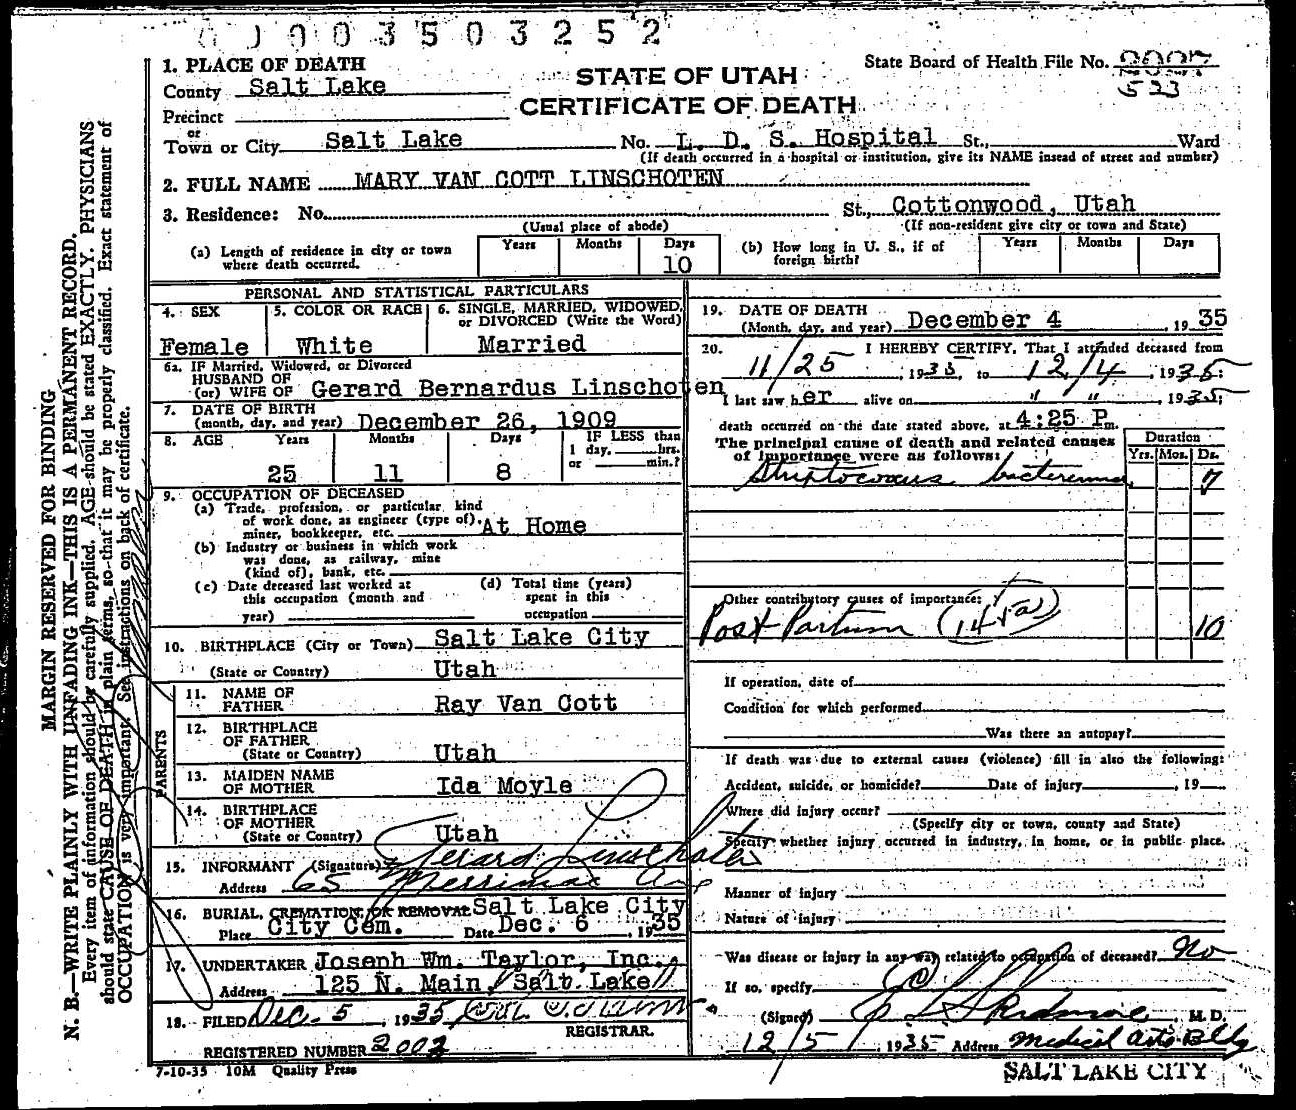 0 0 0 3 5 0 3 2 5 2
1. PLACE OF DEATH
County Salt Lake
Precinct
or
Town or City Salt Lake No. L. D. S. Hospital St., Ward
(If death occurred in a hospital or institution, give its NAME insead of street and number)
STATE OF UTAH
CERTIFICATE OF DEATH
State Board of Health File No.
523
2. FULL NAME MARY VAN COTT LINSCHOTEN
3. Residence: No. St., Cottonwood, Utah
(Usual place of abode) (If non-resident give city or town and State)
(a) Length of residence in city or town where death occurred. Years Months Days 10
(b) How long in U. S., if of foreign birth? Years Months Days
PERSONAL AND STATISTICAL PARTICULARS
4. SEX 5. COLOR OR RACE 6. SINGLE, MARRIED, WIDOWED,
or DIVORCED (Write the Word)
Female White Married
6a. IF Married, Widowed, or Divorced
HUSBAND OF
(or) WIFE OF Gerard Bernardus Linschoten
7. DATE OF BIRTH
(month, day, and year) December 26, 1909
8. AGE Years Months Days IF LESS than
1 day, hrs.
or min.?
25 11 8
9. OCCUPATION OF DECEASED
(a) Trade, profession, or particular kind
of work done, as engineer (type of),
miner, bookkeeper, etc. At Home
(b) Industry or business in which work
was done, as railway, mine
(kind of), bank, etc.
(c) Date deceased last worked at
this occupation (month and
year)
(d) Total time (years)
spent in this
occupation
10. BIRTHPLACE (City or Town) Salt Lake City
(State or Country) Utah
PARENTS
11. NAME OF
FATHER Ray Van Cott
12. BIRTHPLACE
OF FATHER
(State or Country) Utah
13. MAIDEN NAME
OF MOTHER Ida Moyle
14. BIRTHPLACE
OF MOTHER
(State or Country) Utah
15. INFORMANT (Signature) Gerard Linschoten
Address 65 Merrimac Ave
16. BURIAL, CREMATION, OR REMOVAL Salt Lake City
Place City Cem. Date Dec. 6, 1935
17. UNDERTAKER Joseph Wm. Taylor, Inc.
Address 125 N. Main, Salt Lake
18. FILED Dec. 5, 1935
REGISTRAR.
REGISTERED NUMBER 2002
7-10-35 10M Quality Press
19. DATE OF DEATH
(Month, day, and year) December 4, 1935
20. I HEREBY CERTIFY, That I attended deceased from
11/25, 1935, to 12/4, 1935;
I last saw her alive on " ", 1935;
death occurred on the date stated above, at 4:25 P.m.
The principal cause of death and related causes
of importance were as follows:
Duration
Yrs. Mos. Ds.
Streptococcus bacteremia 7
Other contributory causes of importance:
Post Partum (145a) 10
If operation, date of
Condition for which performed
Was there an autopsy?
If death was due to external causes (violence) fill in also the following:
Accident, suicide, or homicide? Date of injury, 19
Where did injury occur?
(Specify city or town, county and State)
Specify whether injury occurred in industry, in home, or in public place.
Manner of injury
Nature of injury
Was disease or injury in any way related to occupation of deceased? No
If so, specify
(Signed) E L Skidmore, M. D.
12/5, 1935 Address Medical Arts Bldg
SALT LAKE CITY
MARGIN RESERVED FOR BINDING
N. B.—WRITE PLAINLY WITH UNFADING INK—THIS IS A PERMANENT RECORD.
Every item of information should be carefully supplied. AGE should be stated EXACTLY. PHYSICIANS
should state CAUSE OF DEATH in plain terms, so that it may be properly classified. Exact statement of
OCCUPATION is very important. See instructions on back of certificate.